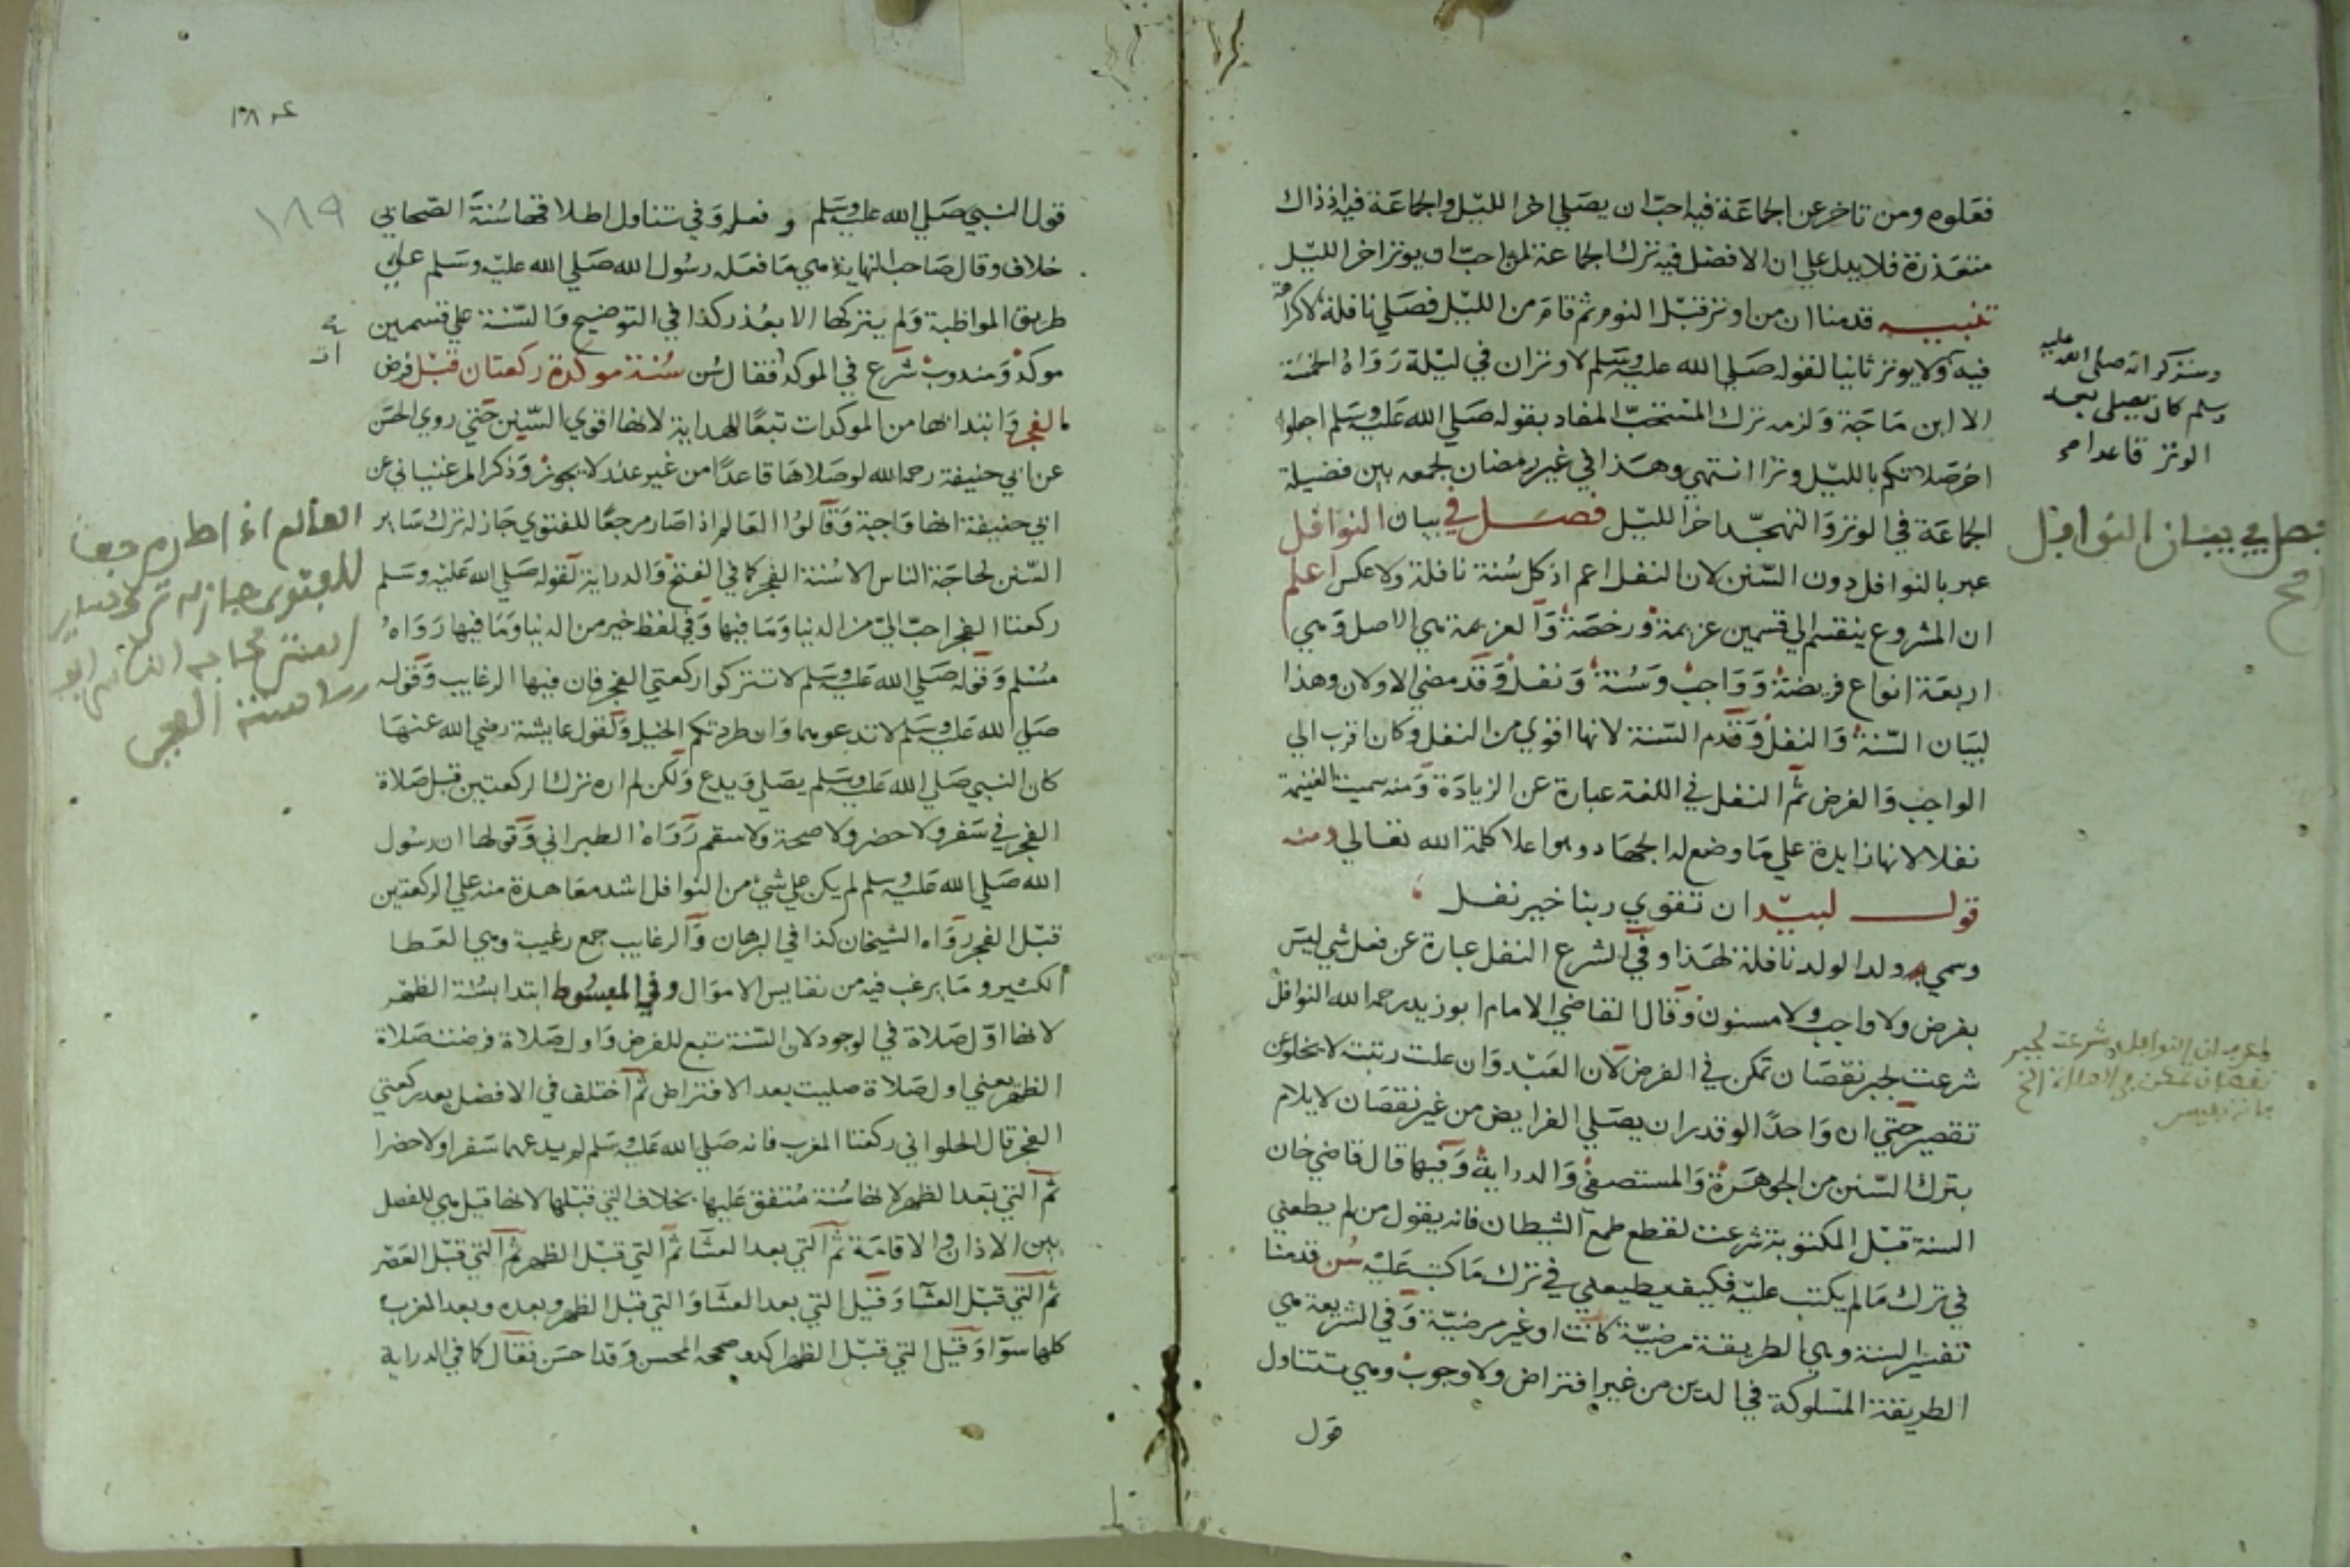 فعلوه ومن تاخر عن الجماعة فيه احب ان يصلي اخر الليل والجماعة فيه اذ ذاك
متعذرة فلا يدل علي ان الافضل فيه ترك الجماعة لمن احب ان يوتر اخر الليل
تنبيه قدمنا ان من اوتر قبل النوم ثم قام من الليل فصلي نافلة لا كراهة
فيه ولا يوتر ثانيا لقوله صلي الله عليه وسلم لا وتران في ليلة رواه الخمسة
الا ابن ماجة ولزمه ترك المستحب المفاد بقوله صلي الله عليه وسلم اجعلوا
اخر صلاتكم بالليل وترا انتهي وهذا في غير رمضان لجمعه بين فضيلة
الجماعة في الوتر والتهجد اخر الليل فصل في بيان النوافل
عبر بالنوافل دون السنن لان النفل اعم اذ كل سنة نافلة ولا عكس اعلم
ان المشروع ينقسم الي قسمين عزيمة ورخصة والعزيمة هي الاصل وهي
اربعة انواع فريضة وواجب وسنة ونفل وقد مضي الاولان وهذا
لبيان السنة والنفل وقدم السنة لانها اقوي من النفل وكان اقرب الي
الواجب والفرض ثم النفل في اللغة عبارة عن الزيادة ومنه سميت الغنيمة
نفلا لانها زايدة علي ما وضع له الجهاد وهو اعلا كلمة الله تعالي ومنه
قول لبيد ان تقوي ربنا خير نفل
وسمي به ولد الولد نافلة لهذا وفي الشرع النفل عبارة عن فعل شي ليس
بفرض ولا واجب ولا مسنون وقال القاضي الامام ابو زيد رحمه الله النوافل
شرعت لجبر نقصان تمكن في الفرض لان العبد وان علت رتبته لا يخلو عن
تقصير حتي ان واحدا لو قدر ان يصلي الفرايض من غير نقصان لا يلام
بترك السنن من الجوهرة والمستصفي والدراية وفيها قال قاضي خان
السنة قبل المكتوبة شرعت لقطع طمع الشيطان فانه يقول من لم يطعني
في ترك ما لم يكتب عليه فكيف يطيعني في ترك ما كتب عليه سن قدمنا
تفسير السنة وهي الطريقة مرضية كانت او غير مرضية وفي الشريعة هي
الطريقة المسلوكة في الدين من غير افتراض ولا وجوب وهي تتناول
قول
وسنذكر انه صلي الله عليه
وسلم كان يصلي بعد
الوتر قاعدا
فصل في بيان النوافل
النوافل شرعت لجبر
نقصان تمكن
١٨٩
قول النبي صلي الله عليه وسلم وفعله وفي تناول اطلاقها سنة الصحابي
خلاف وقال صاحب النهاية هي ما فعله رسول الله صلي الله عليه وسلم علي
طريق المواظبة ولم يتركها الا بعذر كذا في التوضيح والسنة علي قسمين
موكد ومندوب شرع في الموكد فقال سن سنة موكدة ركعتان قبل فرض
الفجر وابتدا بها من الموكدات تبعا للهداية لانها اقوي السنن حتي روي الحسن
عن ابي حنيفة رحمه الله لو صلاها قاعدا من غير عذر لا يجوز وذكر المرغيناني عن
ابي حنيفة انها واجبة وقالوا العالم اذا صار مرجعا للفتوي جاز له ترك ساير
السنن لحاجة الناس الا سنة الفجر كما في الفتح والدراية لقوله صلي الله عليه وسلم
ركعتا الفجر احب الي من الدنيا وما فيها وفي لفظ خير من الدنيا وما فيها رواه
مسلم وقوله صلي الله عليه وسلم لا تتركوا ركعتي الفجر فان فيها الرغايب وقوله
صلي الله عليه وسلم لا تدعوهما وان طردتكم الخيل وكقول عايشة رضي الله عنها
كان النبي صلي الله عليه وسلم يصلي ويدع ولكن لم اره ترك الركعتين قبل صلاة
الفجر في سفر ولا حضر ولا صحة ولا سقم رواه الطبراني وقولها ان رسول
الله صلي الله عليه وسلم لم يكن علي شي من النوافل اشد معاهدة منه علي الركعتين
قبل الفجر رواه الشيخان كذا في البرهان والرغايب جمع رغيبة وهي العطا
الكثير وما يرغب فيه من نفايس الاموال وفي المبسوط ابتدا بسنة الظهر
لانها اول صلاة في الوجود لان السنة تبع للفرض واول صلاة فرضت صلاة
الظهر يعني اول صلاة صليت بعد الافتراض ثم اختلف في الافضل بعد ركعتي
الفجر قال الحلواني ركعتا المغرب فانه صلي الله عليه وسلم لم يدعهما سفرا ولا حضرا
ثم التي بعد الظهر لانها سنة متفق عليها بخلاف التي قبلها لانها قيل هي للفصل
بين الاذان والاقامة ثم التي بعد العشا ثم التي قبل الظهر ثم التي قبل العصر
ثم التي قبل العشا وقيل التي بعد العشا والتي قبل الظهر وبعده وبعد المغرب
كلها سوآ وقيل التي قبل الظهر اكد وصححه المحسن وقد احسن فقال كما في الدراية
العالم اذا صار مرجعا
للفتوى جاز له ترك ساير
السنن لحاجة الناس
الا سنة الفجر